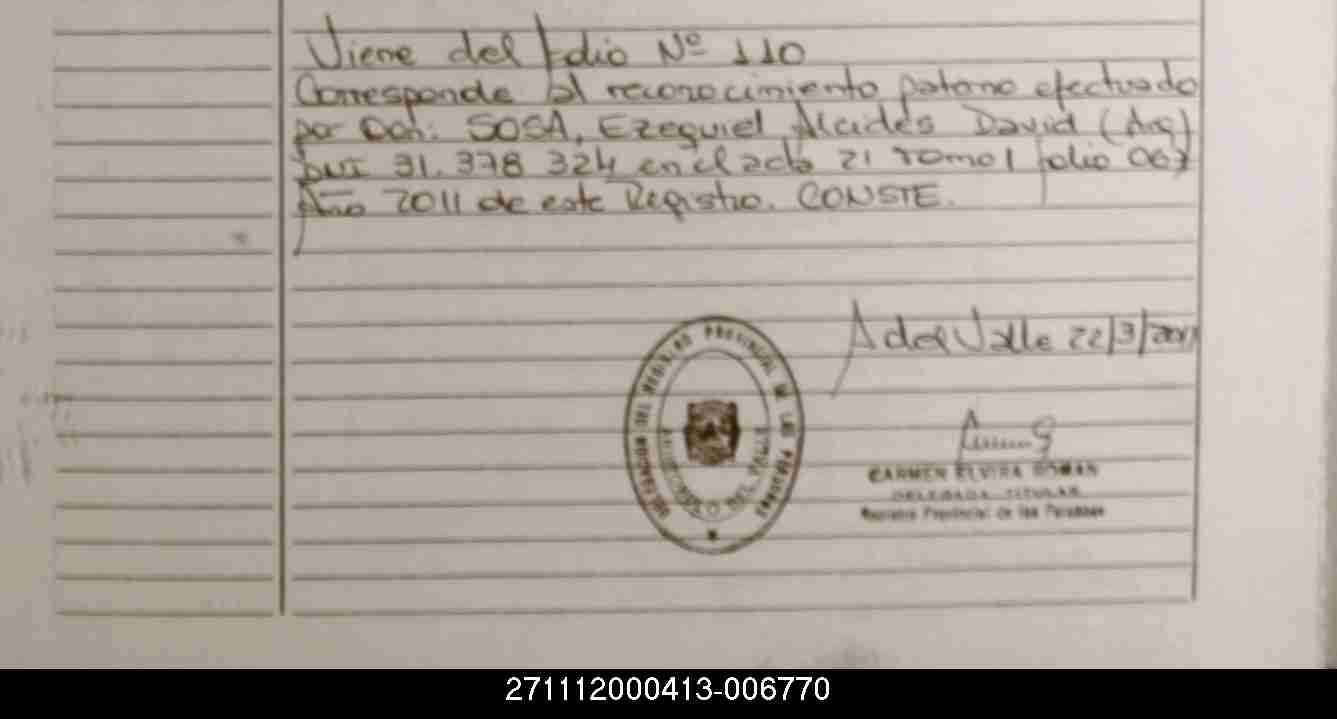 Viene del folio Nº 110
Corresponde al reconocimiento paterno efectuado
por Don: SOSA, Ezequiel Alcides David (Arg)
DNI 31.378 324 en el acta 21 Tomo 1 folio 067
Año 2011 de este Registro. CONSTE.
A del Valle 22/3/2011
DELEGACION DEL REGISTRO PROVINCIAL DE LAS PERSONAS
DEL VALLE
CARMEN ELVIRA ROMAN
DELEGADA TITULAR
Registro Provincial de las Personas
271112000413-006770